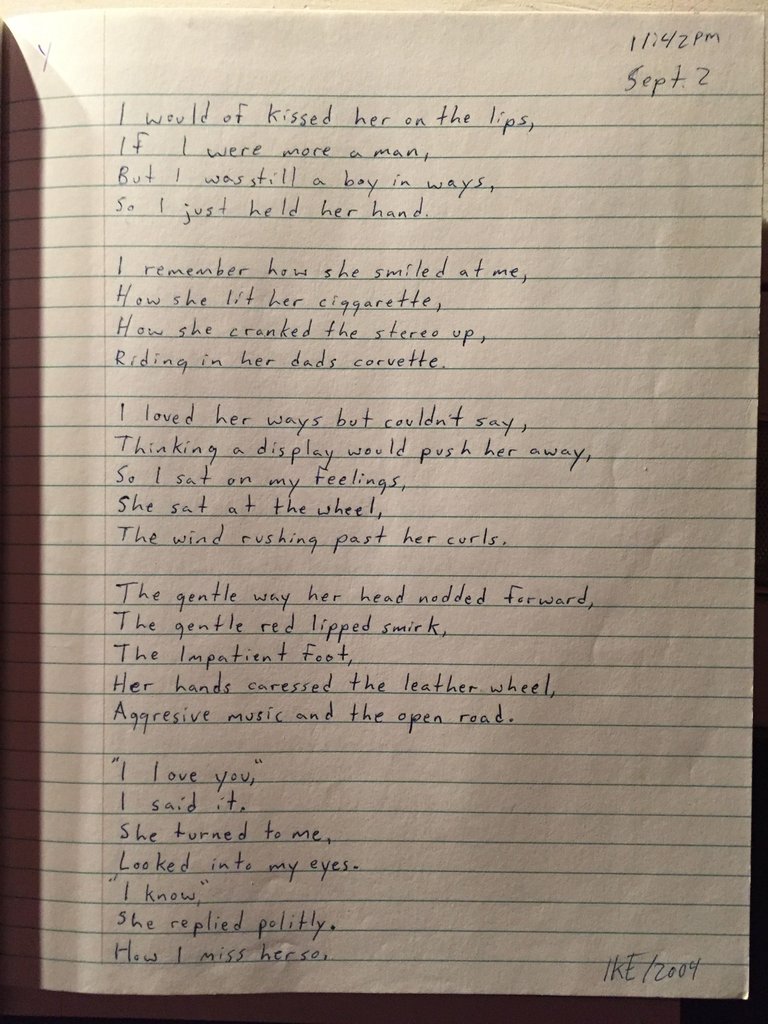 11:42pm
Sept. 2
I would of kissed her on the lips,
If I were more a man,
But I was still a boy in ways,
So I just held her hand.
I remember how she smiled at me,
How she lit her ciggarette,
How she cranked the stereo up,
Riding in her dads corvette.
I loved her ways but couldn't say,
Thinking a display would push her away,
So I sat on my feelings,
She sat at the wheel,
The wind rushing past her curls.
The gentle way her head nodded forward,
The gentle red lipped smirk,
The Impatient foot,
Her hands caressed the leather wheel,
Aggresive music and the open road.
"I love you,"
I said it.
She turned to me,
Looked into my eyes.
"I know,"
She replied politly.
How I miss her so.
IKE/2004